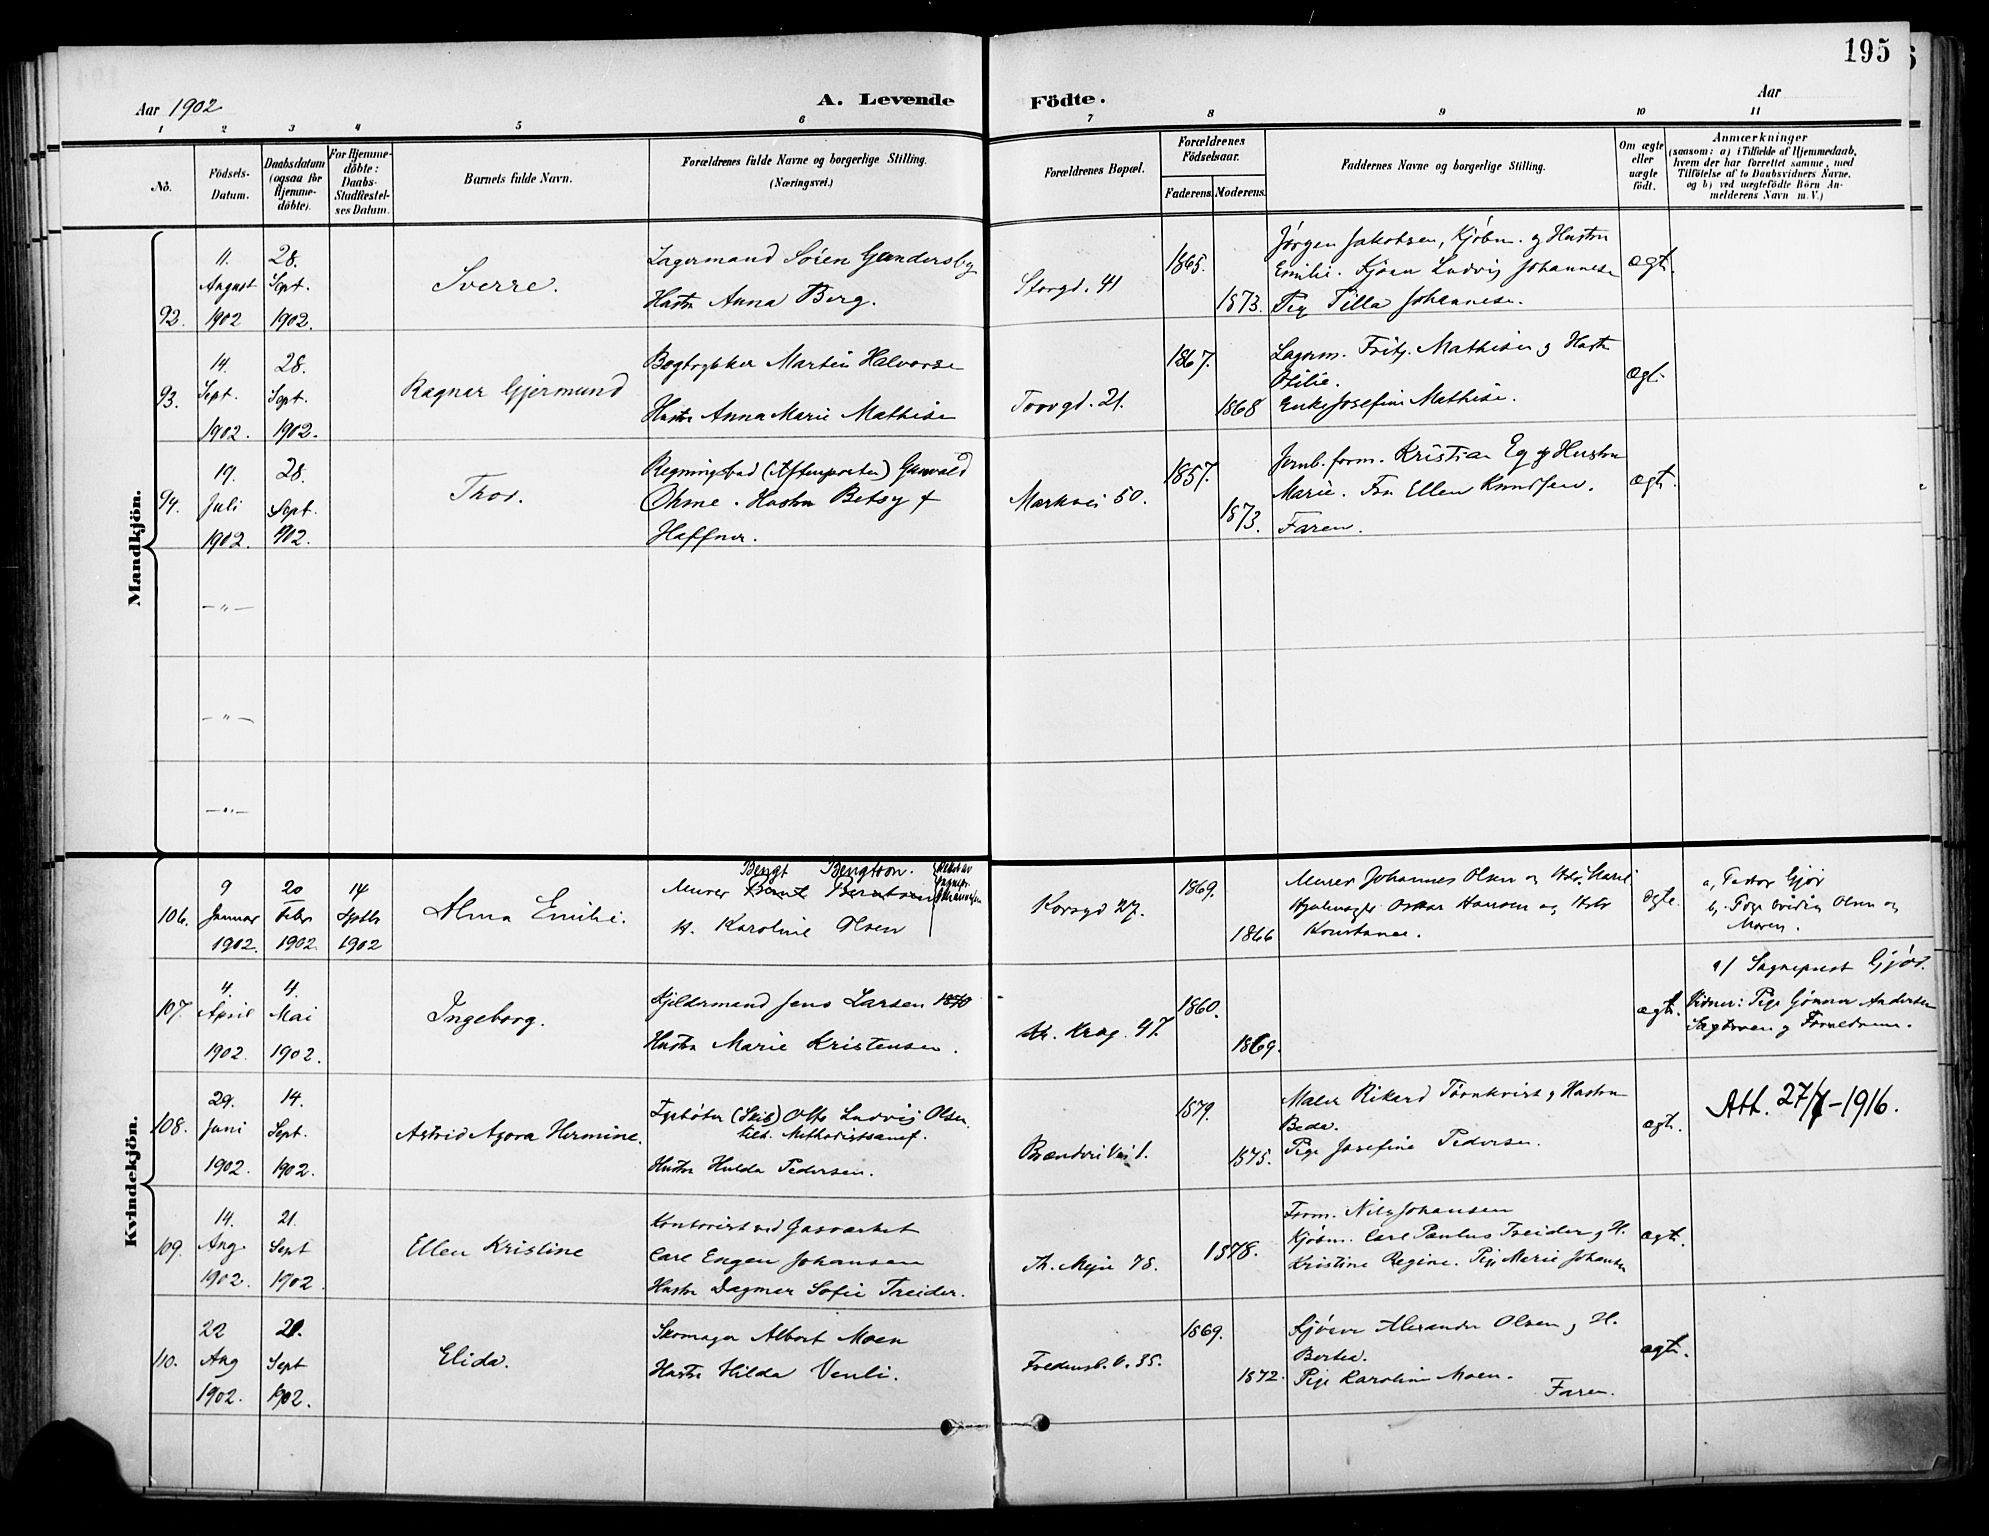 195
Aar 1902
A. Levende Födte.
Aar
1 2 3 4 5 6 7 8 9 10 11
No.
Födsels-Datum.
Daabsdatum (ogsaa for Hjemme-döbte).
For Hjemme-döbte: Daabs-Stadfæstel-ses Datum.
Barnets fulde Navn.
Forældrenes fulde Navne og borgerlige Stilling.
(Næringsvei.)
Forældrenes Bopæl.
Forældrenes Födselsaar.
Faderens. Moderens.
Faddernes Navne og borgerlige Stilling.
Om ægte eller uægte födt.
Anmærkninger
(saasom: a) i Tilfælde af Hjemmedaab,
hvem der har forrettet samme, med
Tilföielse af to Daabsvidners Navne,
og b) ved uægtefödte Börn An-
melderens Navn m. V.)
Mandkjön.
92.
11. August 1902
28. Sept. 1902.
Sverre.
Lagermand Sören Gundersby
Hustru Anna Berg.
Storgd. 41
1865.
1873.
Jörgen Jakobsen, Kjöbm. og Hustru
Emilie. Ludvig Johannese
Pige Tilla Johannese.
ægt.
93.
14. Sept. 1902.
28. Sept. 1902.
Ragnar Gjermund
Bogtrykker Martin Halvorse
Hustr Anna Marie Mathise
Torvgd. 21.
1867.
1868
Lagerm. Fritz. Mathisen og Hustr
Otilie.
Enke Josefine Mathise.
ægt.
94.
19. Juli 1902.
28. Sept. 902.
Thor.
Regningsbud (Aftenposten) Gunvald
Ohme. Hustru Betsy f
Haffner.
Markvei 50.
1857.
1873.
Jernb.form. Kristian Eg og Hustru
Marie. Fru Ellen Knudsen.
Faren.
ægt.
— " —
— " —
— " —
Kvindekjön.
106.
9 Januar 1902.
20 Febr 1902
14 Septb 1902
Alma Emilie.
Bengt Bengtson.
Murer Bernt Berntsen
H. Karoline Olsen
Korsgd 27.
1869.
1866
Murer Johannes Olsen og Hstr. Marie
Oskar Hansen og Hstr
Konstance.
ægte.
a, Pastor Gjör
b, Pige Olsen og
Moren.
107.
4. April 1902.
4. Mai 1902.
Ingeborg.
Kjeldermand Jens Larsen 1870
Hustru Marie Kristensen.
Kr. Krog. 47.
1860.
1869.
ægt.
a/ Sognepræst Gjör.
Vidner: Pige Gunner Andersen
og Forældrene.
108.
29. Juni 1902.
14. Sept. 1902.
Astrid Agora Hermine.
(Skib) Otto Ludvig Olsen.
tilh. Methodistsamf.
Hustru Hulda Pedersen.
1879.
1875.
Maler Rikard Törnkvist og Hustru
Beda.
Pige Josefine Pedersen.
ægt.
Att. 27/7-1916.
109.
14. Aug. 1902.
21. Sept 1902.
Ellen Kristine
Kontorist ved Gasværket
Carl Eugen Johansen
Hustru Dagmar Sofie Treider.
Th. Meyer 78.
1878.
Form. Nils Johansen
Kjöbm. Carl Paulus Treider og H.
Kristine Regine. Pige Marie Johansen
ægt.
110.
22 Aug 1902.
21. Sept 1902.
Elida.
Skomager Albert Moen
Hustr Hilda Venli.
Fredensb.v. 35.
1869.
1872.
Alexander Olsen og H.
Bertea.
Pige Karoline Moen. Faren.
ægt.